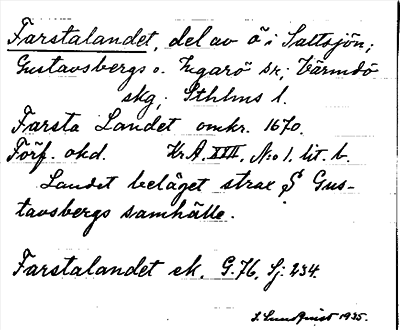 Farstalandet, del av ö i Saltsjön;
Gustavsbergs o. Ingarö sk; Värmdö
skg, Sthlms l.
Farsta Landet omkr. 1670.
Förf. okd. Kr.A. XXII, No 1. lit. b.
Landet beläget strax S Gus-
tavsbergs samhälle.
Farstalandet ek. G. 76, Sj: 234.
1935.